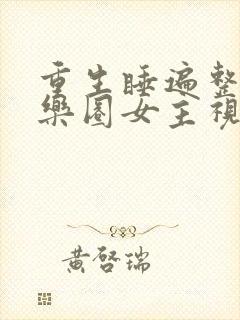 重生睡遍整
樂圈女主視
黃啓瑞